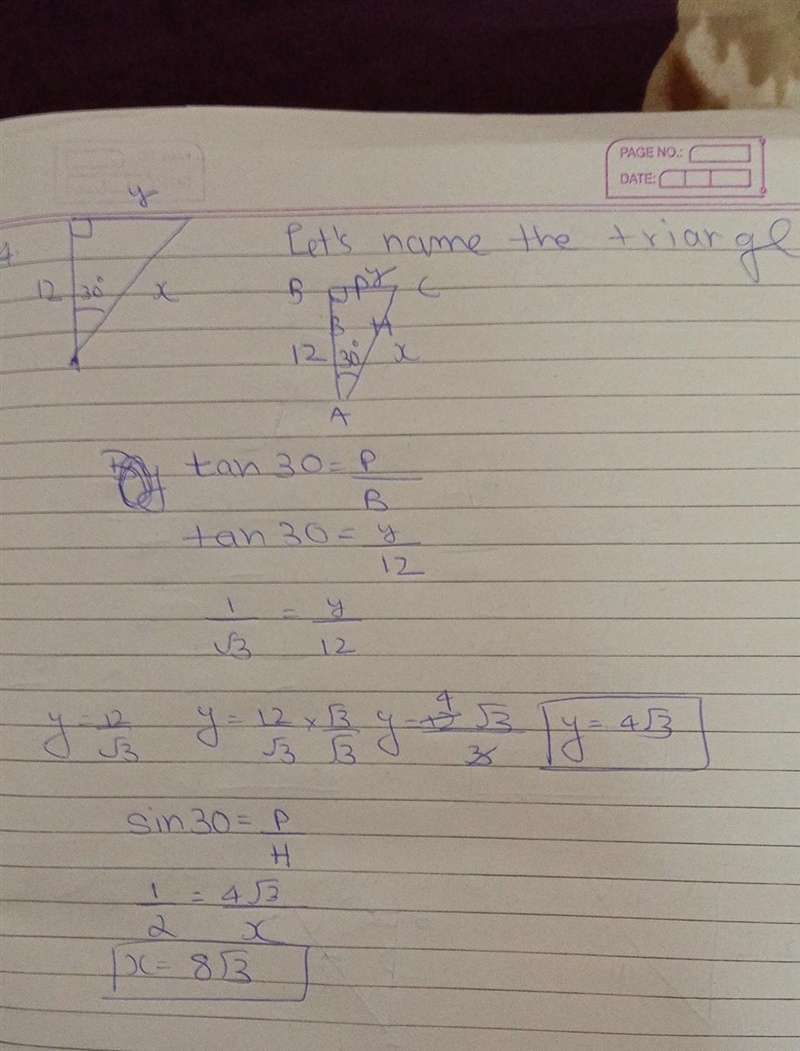 PAGE NO.:
DATE:
y
Let's name the triangle
12 30° x
B P y C
B H
12 30° x
A
tan 30 = P/B
tan 30 = y/12
1/√3 = y/12
y = 12/√3 y = 12/√3 × √3/√3 y = 12 4 √3/3 y = 4√3
sin 30 = P/H
1/2 = 4√3/x
x = 8√3